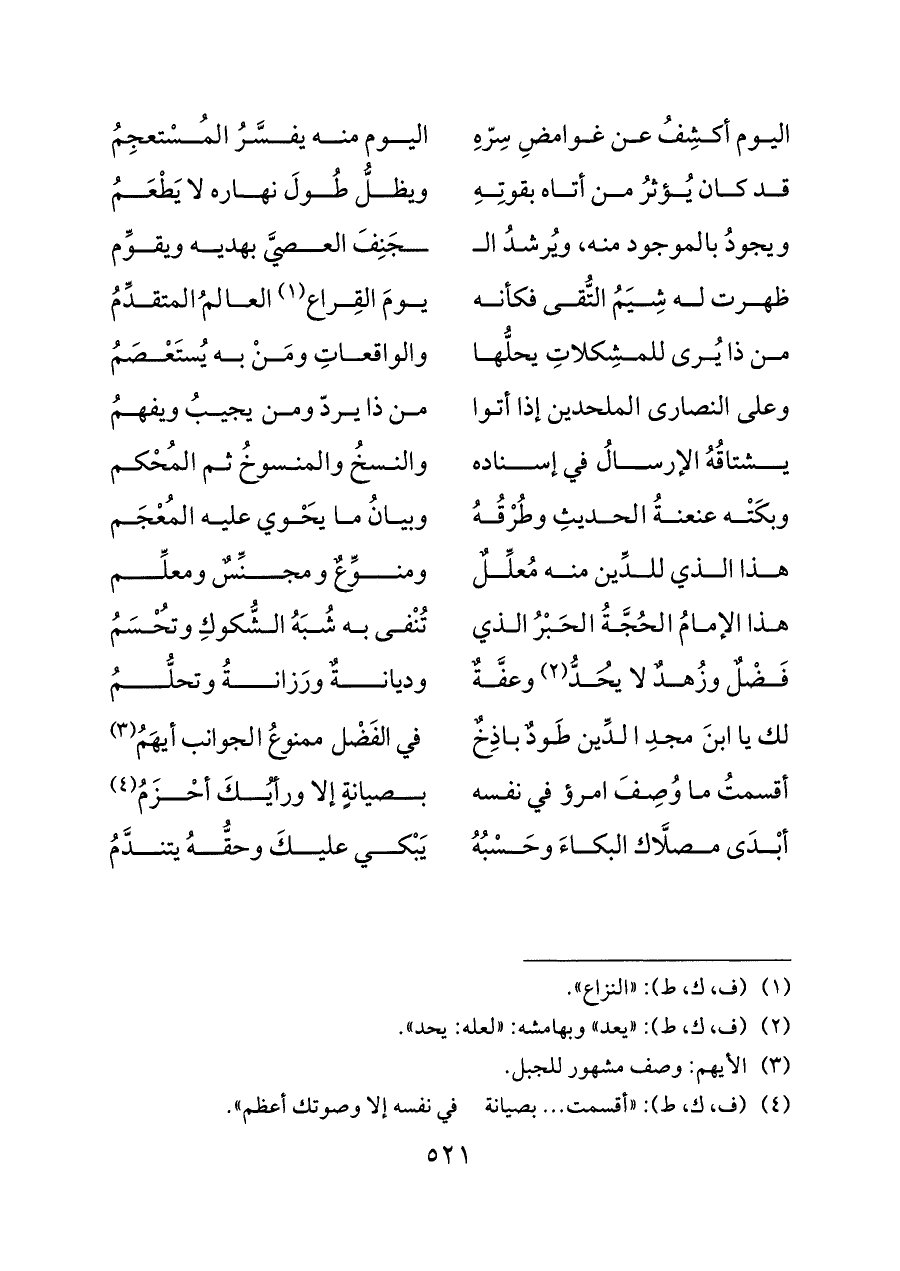 اليوم أكشِفُ عن غوامضِ سِرّهِ اليوم منه يفسَّرُ المُسْتعجِمُ
قد كان يُؤثرُ من أتاه بقوتِهِ ويظلُّ طُولَ نهاره لا يَطْعَمُ
ويجودُ بالموجود منه، ويُرشدُ الـ ـجَنِفَ العصيَّ بهديه ويقوِّم
ظهرت له شِيَمُ التُّقى فكأنه يومَ القِراع(١) العالمُ المتقدِّمُ
من ذا يُرى للمشِكلاتِ يحلُّها والواقعاتِ ومَنْ به يُستَعْصَمُ
وعلى النصارى الملحدين إذا أتوا من ذا يردّ ومن يجيبُ ويفهمُ
يشتاقُهُ الإرسالُ في إسناده والنسخُ والمنسوخُ ثم المُحْكم
وبكَتْه عنعنةُ الحديثِ وطُرْقُهُ وبيانُ ما يحَْوي عليه المُعْجَم
هذا الذي للدِّين منه مُعلِّلٌ ومنوِّعٌ ومجنِّسٌ ومعلِّم
هذا الإمامُ الحُجَّةُ الحَبْرُ الذي تُنْفى به شُبَهُ الشُّكوكِ وتحُْسَمُ
فَضْلٌ وزُهدٌ لا يحَُدُّ(٢) وعفَّةٌ وديانةٌ ورَزانةُ وتحلُّمُ
لك يا ابنَ مجدِ الدِّين طَودٌ باذِخٌ في الفَضْل ممنوعُ الجوانب أيهَمُ(٣)
أقسمتُ ما وُصِفَ امرؤ في نفسه بصيانةٍ إلا ورأيُكَ أحْزَمُ(٤)
أبْدَى مصلَّاك البكاءَ وحَسْبُهُ يَبْكي عليكَ وحقُّهُ يتندَّمُ
(١) (ف، ك، ط): «النزاع».
(٢) (ف، ك، ط): «يعد» وبهامشه: «لعله: يحد».
(٣) الأيهم: وصف مشهور للجبل.
(٤) (ف، ك، ط): «أقسمت... بصيانة في نفسه إلا وصوتك أعظم».
٥٢١